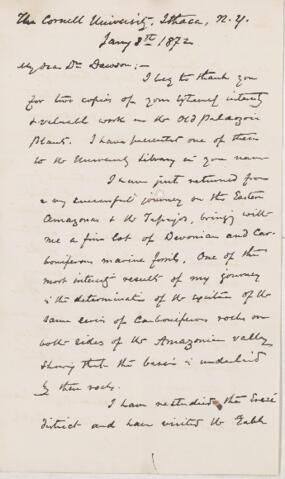 The Cornell University, Ithaca, N.Y.
Jany 8th 1872
My dear Dr. Dawson:—
I beg to thank you
for two copies of your extremely interesty
& valuable work on the Old Palaeozoic
Plants. I have presented one of them
to the University Library in your name
I have just returned from
a very successful journey on the Eastern
Amazonas & the Tapajos, bringing with
me a fine lot of Devonian and Car-
boniferous marine fossils. One of the
most interesty results of my journey
is the determination of the existence of the
same series of Carboniferous rocks on
both sides of the Amazonian valley
showing that the basin is underlaid
by these rocks.
I have restudied the Ereré
district and have visited the Table